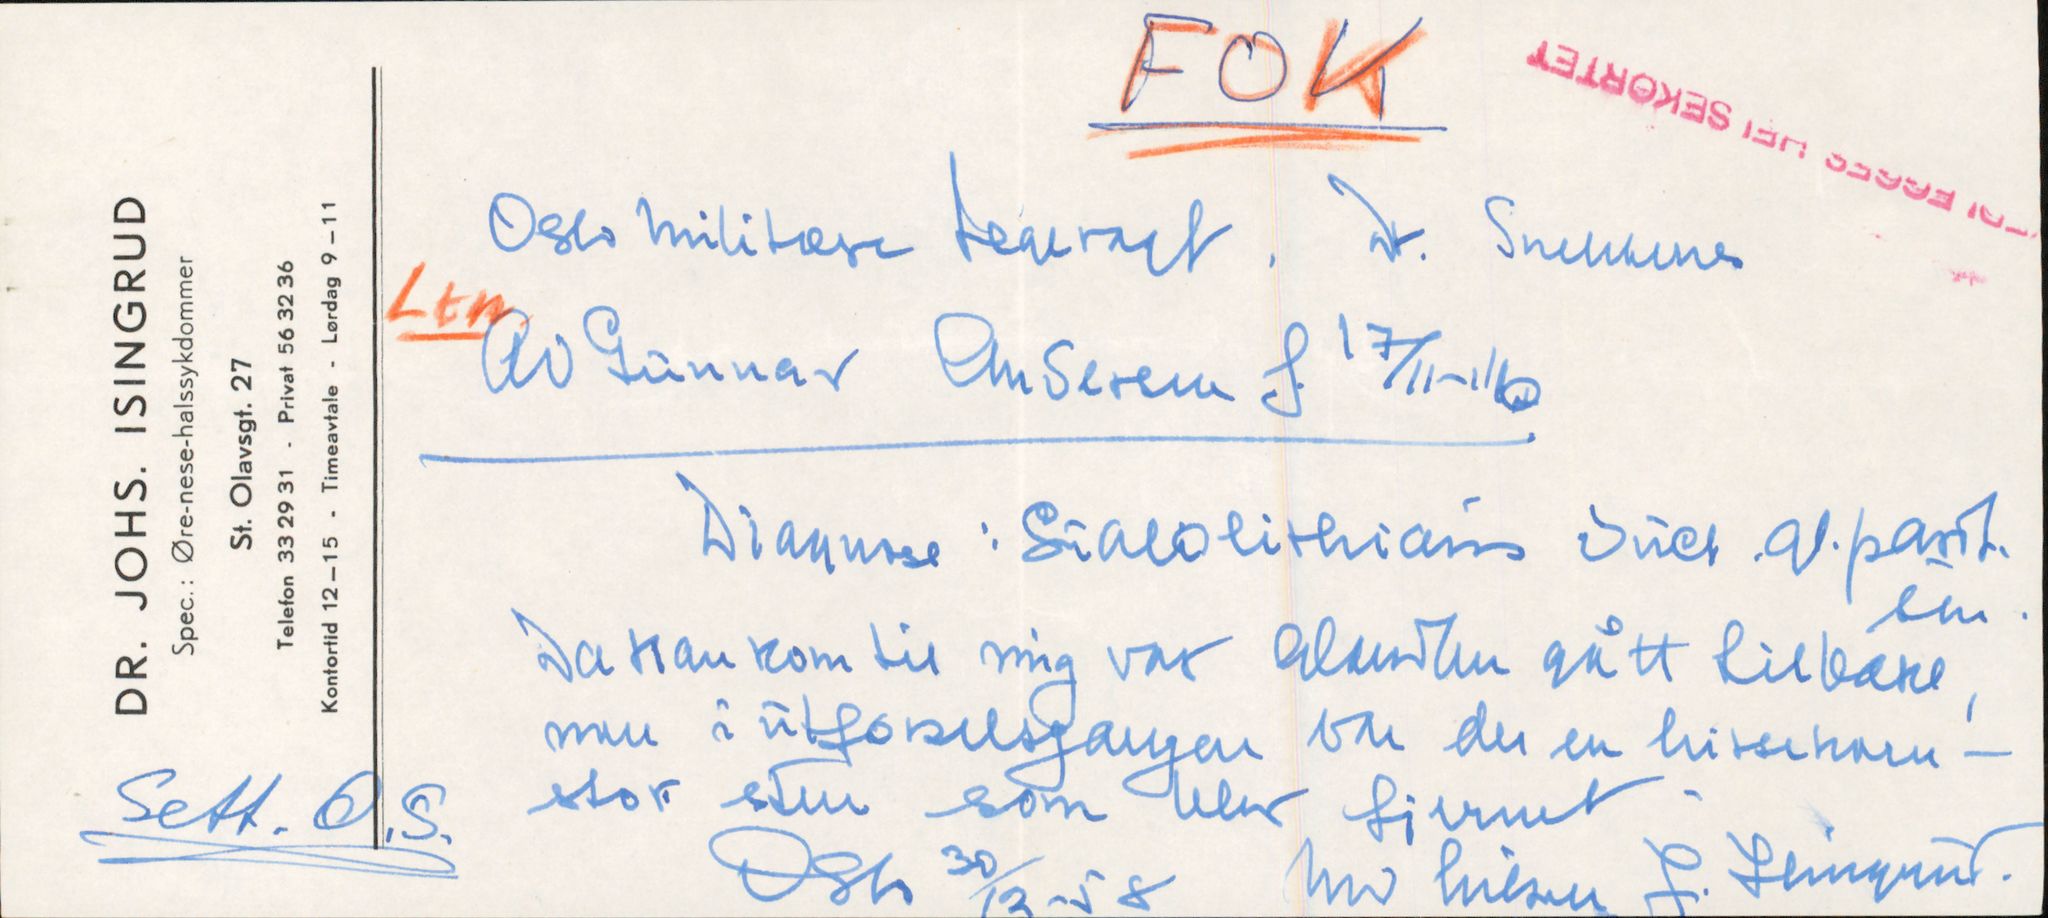 FOK
DR. JOHS. ISINGRUD
Spec.: Øre-nese-halssykdommer
St. Olavsgt. 27
Telefon 33 29 31 - Privat 56 32 36
Kontortid 12-15 - Timeavtale - Lørdag 9-11
SEKORTET
Oslo militære legevagt. Dr. Snekkenes
Ltn
Gunnar Andersen f. 17/11-
Diagnose: Sialolithiasis duct. gl. parot.
sin.
Da han kom til mig var glandlen gått tilbake,
men i utførselsgangen var der en hirsekorn-
stor sten som blev fjernet.
Sett. O.S.
Oslo 30/12-58 Med hilsen J. Isingrud.